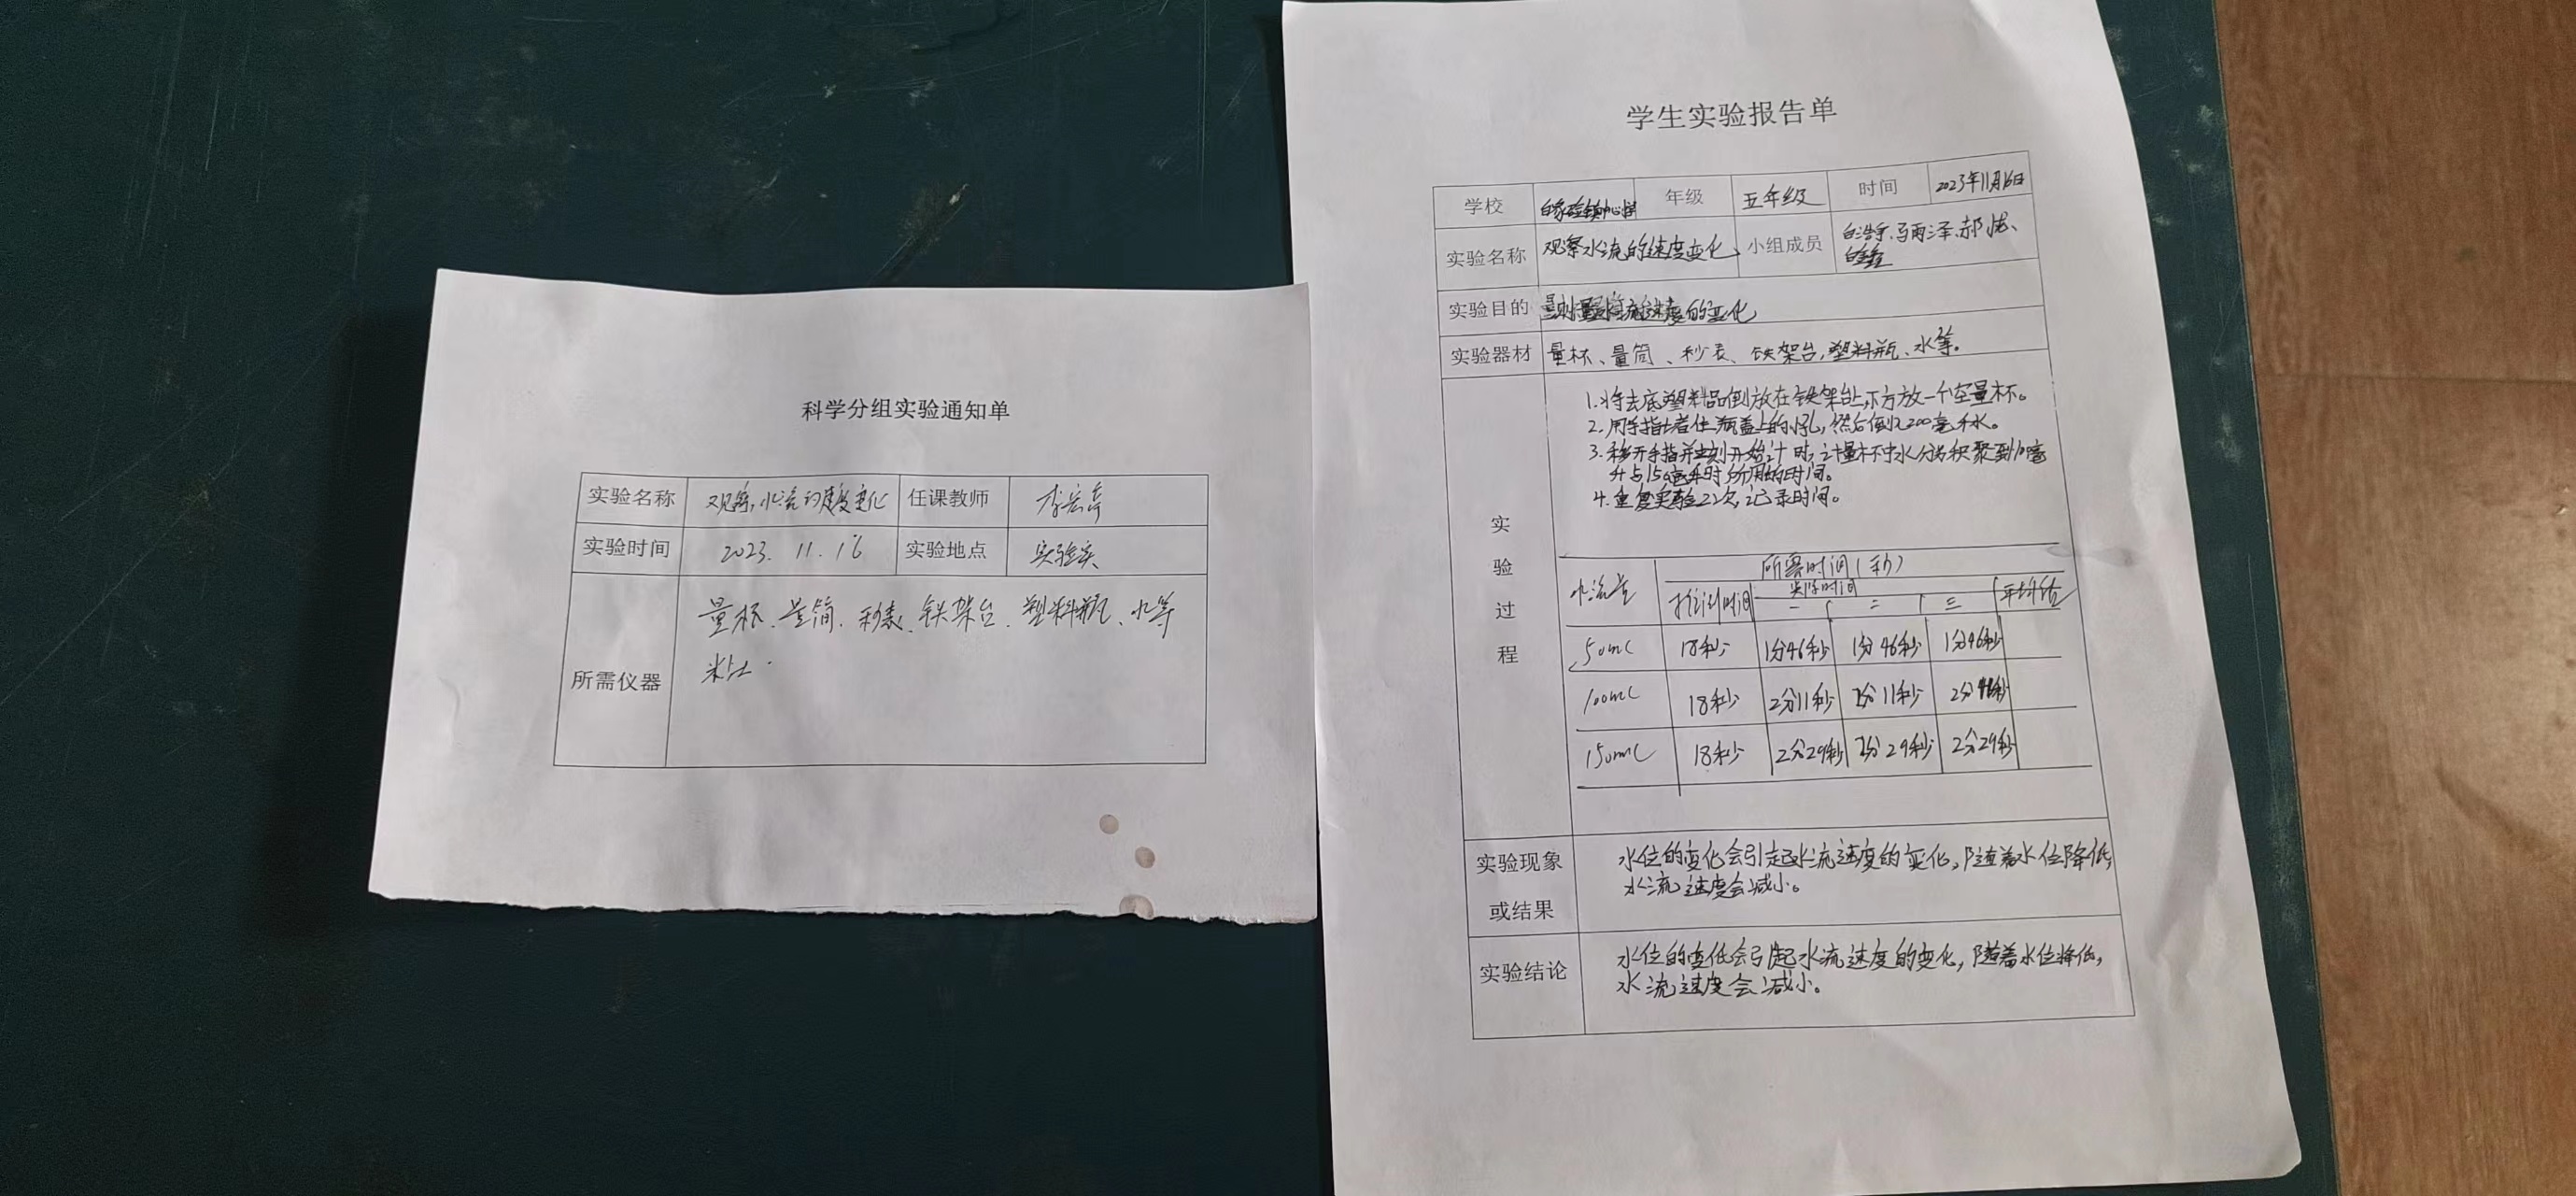 科学分组实验通知单
实验名称 观察水流的速度变化 任课教师
实验时间 2023.11.16 实验地点 实验室
所需仪器 量杯、量筒、秒表、铁架台、塑料瓶、水等
学生实验报告单
学校 年级 五年级 时间 2023年11月16日
实验名称 观察水流的速度变化 小组成员 白浩宇、马雨泽、郝
实验目的 水流速度的变化
实验器材 量杯、量筒、秒表、铁架台,塑料瓶、水等。
实验过程
1.将去底塑料品倒放在铁架台上,下方放一个空量杯。
2.用手指堵住瓶盖上的小孔,然后倒入200毫升水。
3.移开手指并立刻开始计时,计量杯中水分别积聚到10毫
升与150毫升时所用的时间。
4.重复实验22次,记录时间。
水流量 所需时间(秒)
推测时间 实际时间
一 二 三 平均值
50mL 18秒 1分46秒 1分46秒 1分46秒
100mL 18秒 2分11秒 2分11秒 2分
150mL 18秒 2分29秒 2分29秒 2分29秒
实验现象或结果 水位的变化会引起水流速度的变化,随着水位降低,
水流速度会减小。
实验结论 水位的变低会引起水流速度的变化,随着水位降低,
水流速度会减小。